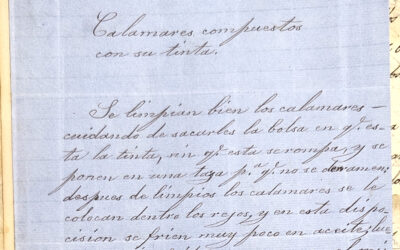 Calamares compuestos
con su tinta.
Se limpian bien los calamares
cuidando de sacarles la bolsa en q.e es-
ta la tinta, sin q.e esta se rompa, y se
ponen en una taza p.a q.e no se derramen;
despues de limpios los calamares se le
colocan dentro los rejos, y en esta dispo-
cision se frien muy poco en aceite; lue